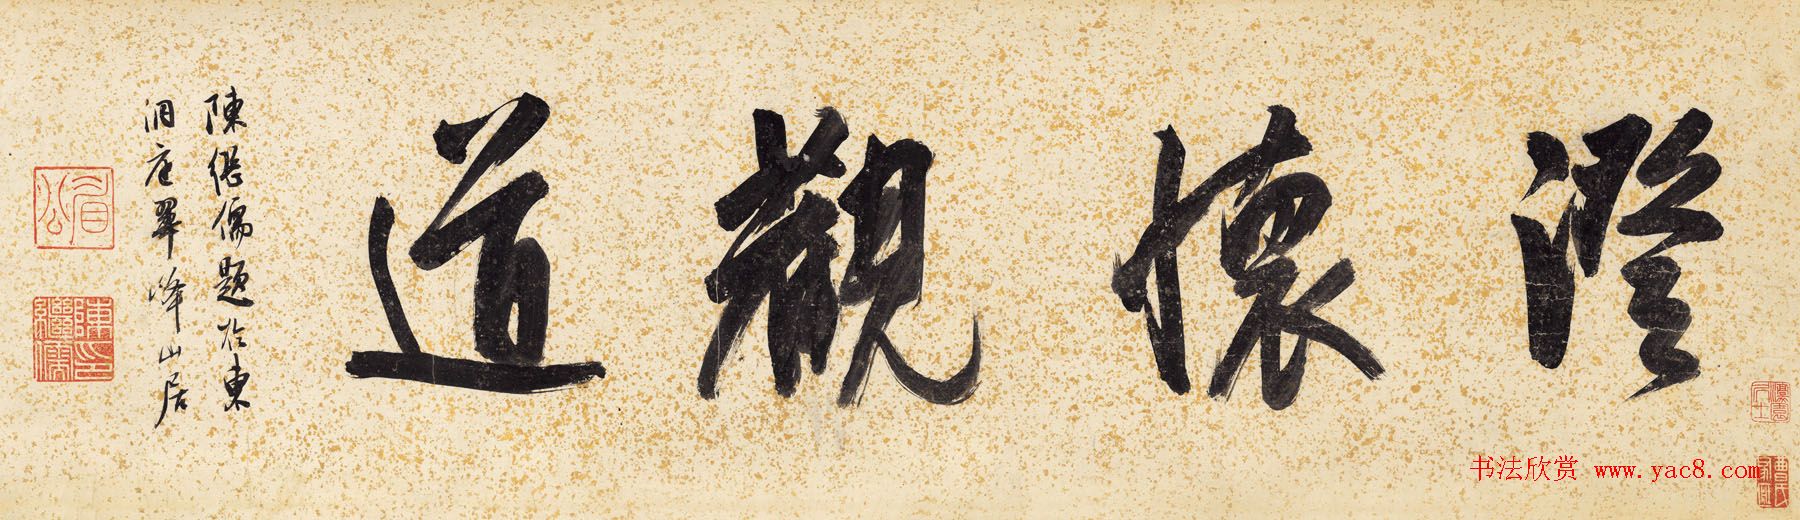 澄懷觀道
陳繼儒題於東
洞庭翠峰山居
眉公
陳印繼儒
书法欣赏 www.yac8.com